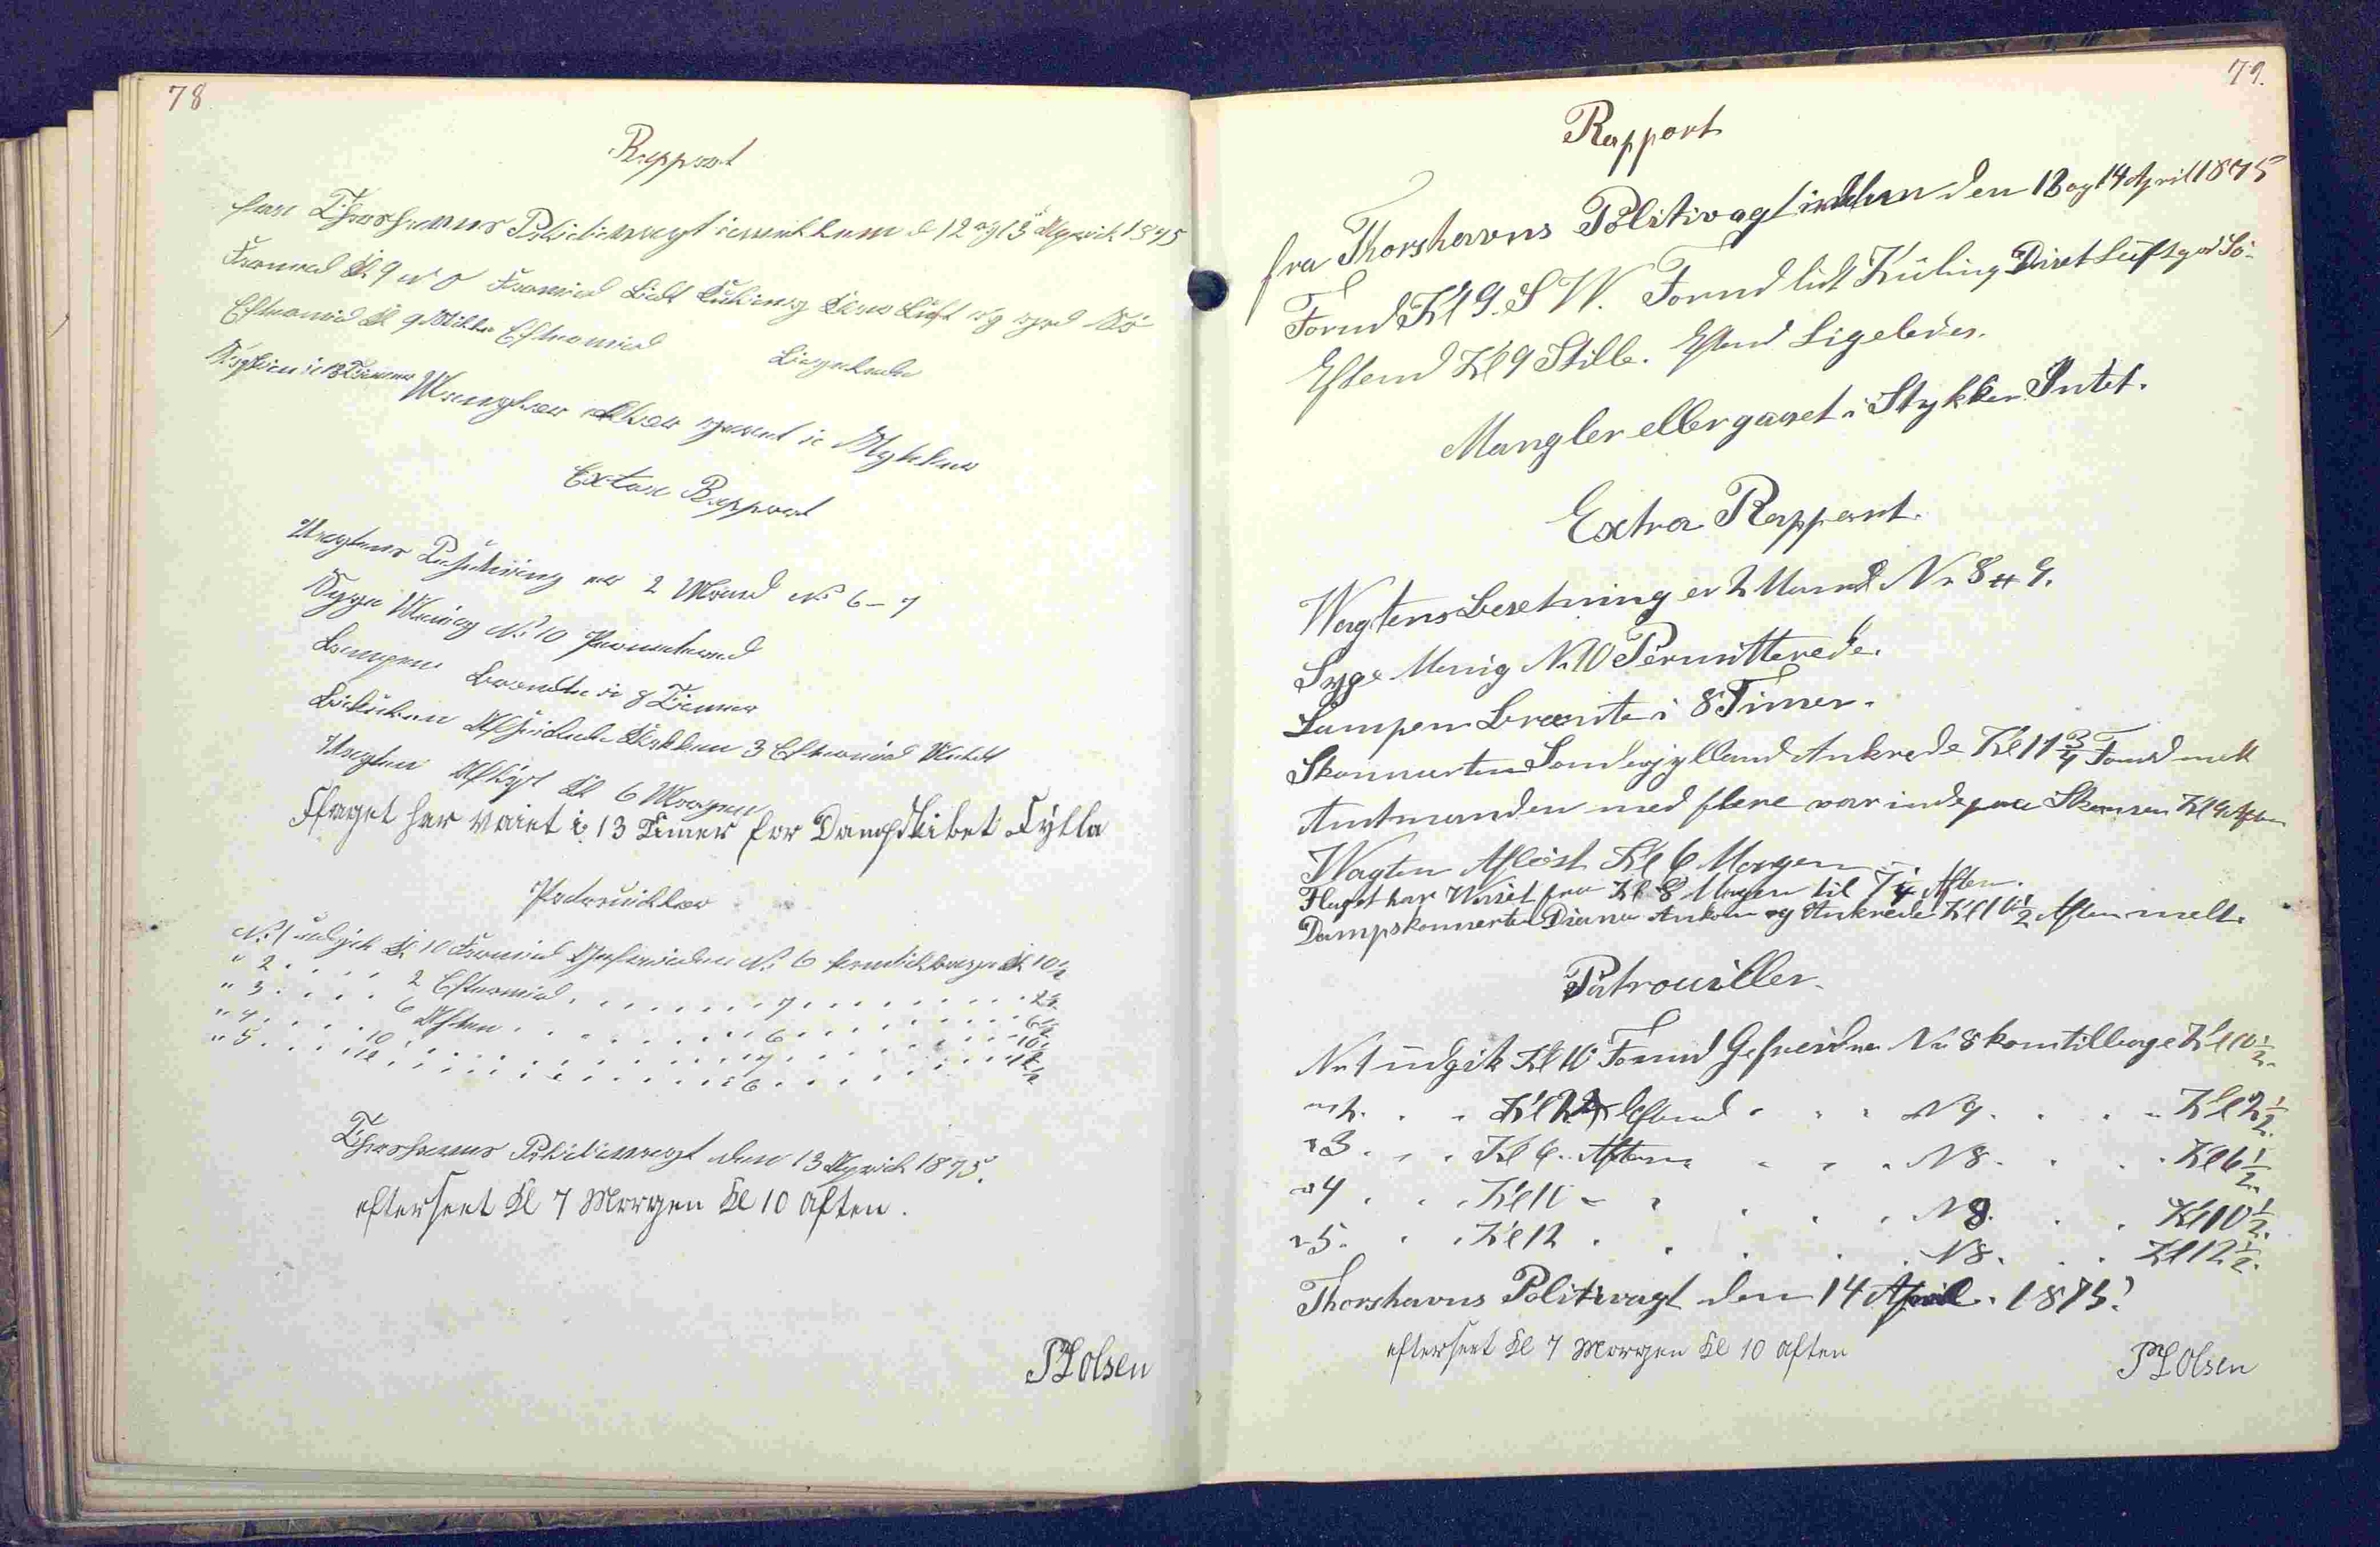 78
Rapport
fra Thorshavns Politivagt imellem d 12 og 13 April 1875
Formd Kl. 9 N O Formid Lidt Kuling Klar Luft og god Sö
Eftermid Kl 9 Stille Eftermid Ligeledes
i 13 Timer Mangler eller gaaet i Stykker
Extra Rapport
Vagtens Besætning er 2 Mand No 6 - 7
Syge Menig No. 10 Permitered
Lampen Brændte i 8 Timer
3 Eftermid
Vagten Aflöst Kl 6 Morgen
Flaget har vaiet i 13 Timer for Dampskibet Fylla
Patrouiller
No. 1 udgik Kl. 10 Formid Gefreider No. 6 kom tilbage Kl 10½
" 2 . . . . 2 Eftermid . . . . . . 7 . . . . . . 2½
" 3 . . . . 6 Aften . . . . . . 6 . . . . . . 6½
" 4 . . . . 10 . . . . . . 7 . . . . . . 10½
" 5 . . . . 12 . . . . . . 6 . . . . . . 12½
Thorshavns Politivagt den 13 April 1875.
efterseet Kl 7 Morgen Kl 10 aften.
Olsen
79.
Rapport
fra Thorshavns Politivagt imellem den 13 og 14 April 1875
Formd Kl 9. S W. Formd lidt Kuling Diset Luft god Sö.
Eftemd Kl 9 Stille. Eftemd Ligeledes.
Mangler eller gaaet i Stykker Intet.
Extra Rapport.
Vagtens Besetning er 2 Mand Nr 8 & 9.
Syge Menig Nr 10 Permitterede.
Lampen Brænte i 8 Timer.
Skonnerten Sönderjylland Ankrede Kl 11 3/4 Formd melt
Amtmanden med flere var inde paa Skansen Kl 9 Aften
Vagten Aflöst Kl 6 Morgen
Flaget har Vaiet fra Kl 8 Morgen til 7 1/4 Aften.
Dampskonnerten Diana Ankom og Ankrede Kl 10½ Aften melt.
Patrouiller.
Nr 1 udgik Kl 10 Formd Gefreider Nr 8 kom tilbage Kl 10½.
" 2. . . Kl 2 Eftemd . . . N 9. . . . Kl 2½.
" 3. . . Kl 6. Aften . . . N 8. . . . Kl 6½.
" 4 . . . Kl 10 " . . . . N 8. . . . Kl 10½.
" 5. . . Kl 12 . . . . . N 8. . . . Kl 12½.
Thorshavns Politivagt den 14 April. 1875.
efterseet Kl 7 Morgen Kl 10 aften
Olsen